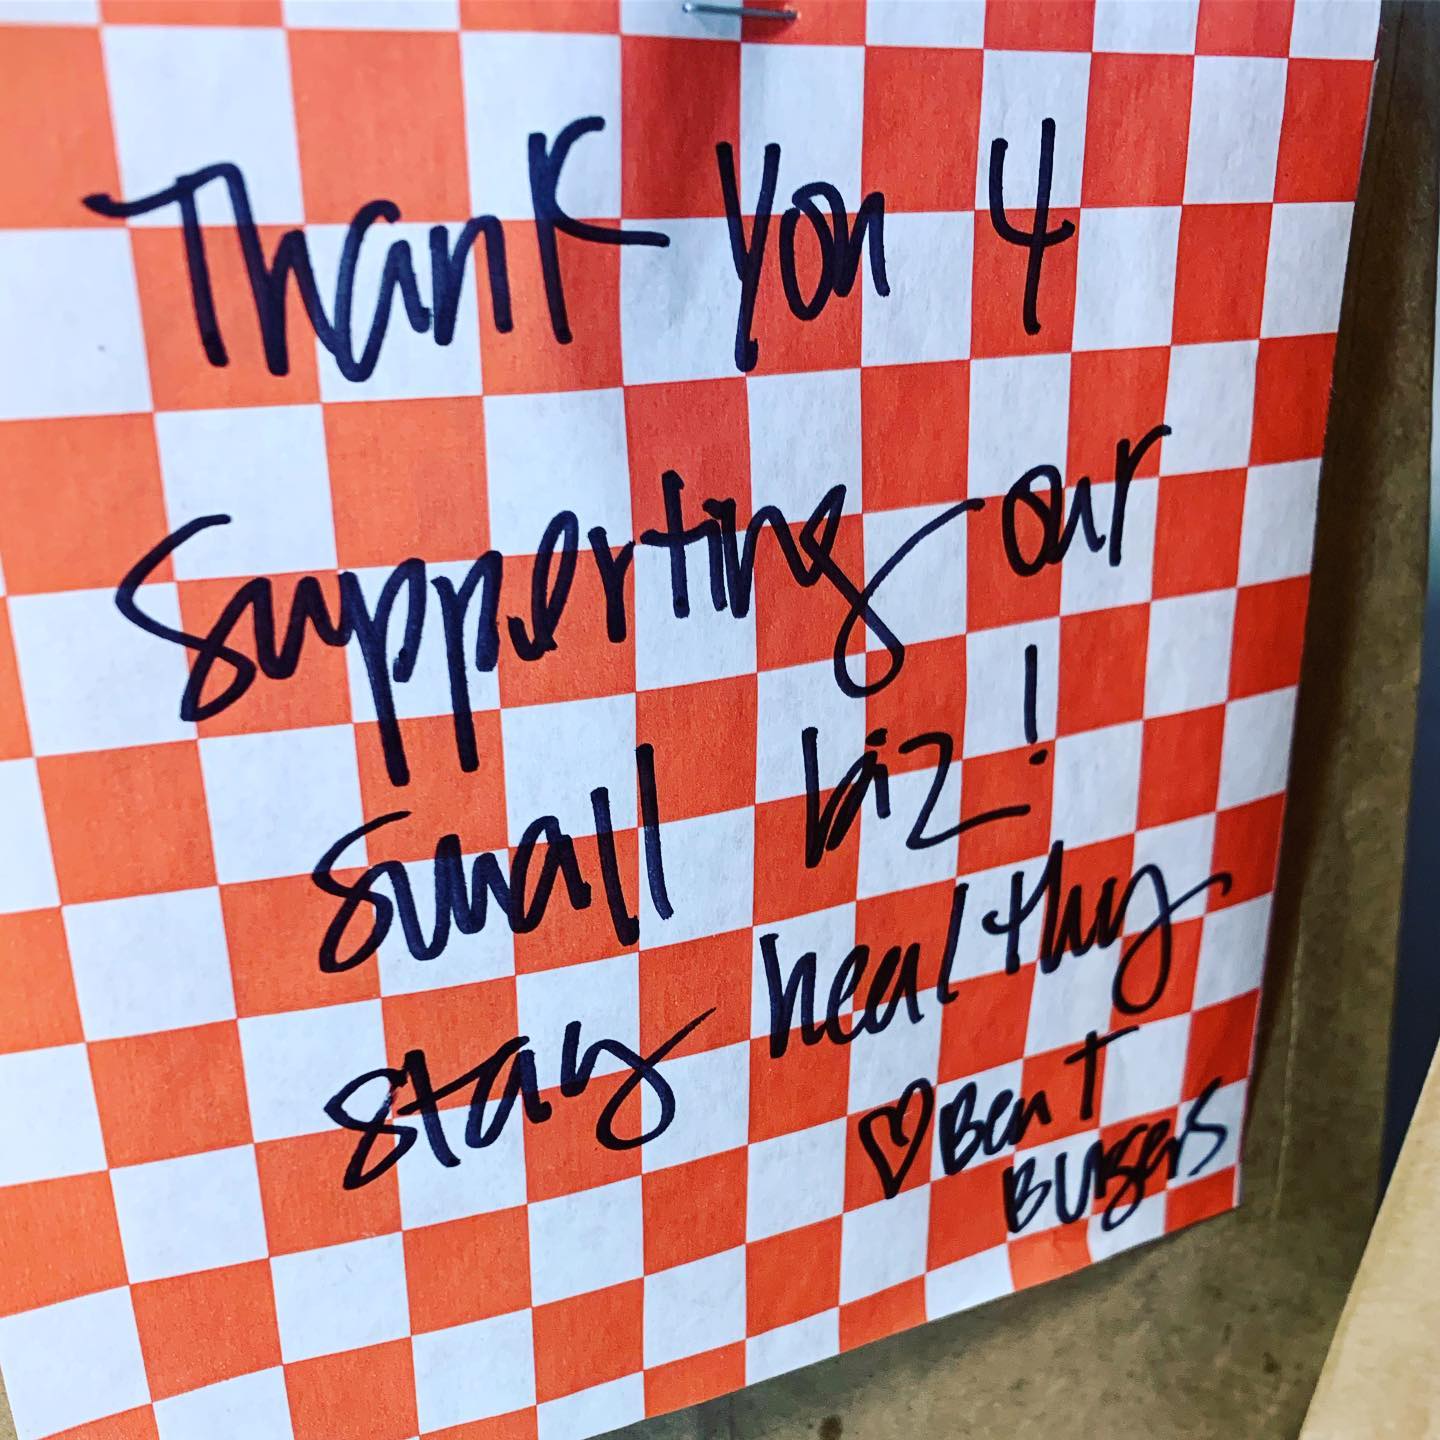 Thank you 4
supporting our
small biz!
stay healthy
♡ Ben T
Burgers